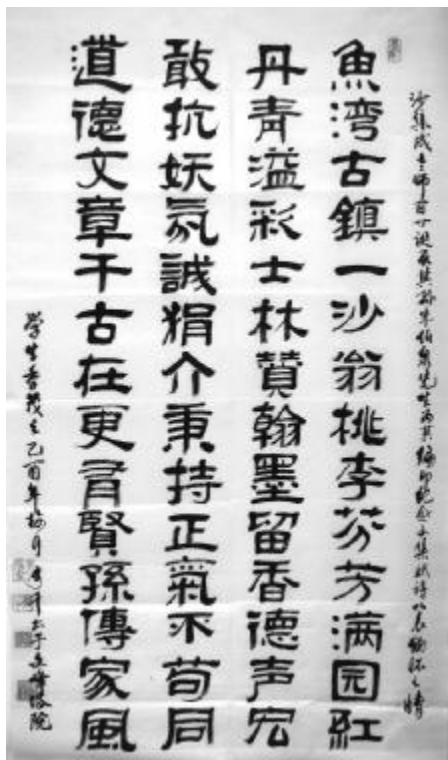 沙集成老师百十诞辰其孙先生为其编印纪念集赋诗以表缅怀之情
魚湾古鎮一沙翁桃李芬芳满园紅
丹青溢彩士林贊翰墨留香德声宏
敢抗妖氛誠狷介秉持正氣不苟同
道德文章千古在更有賢孫傳家風
學生乙酉年梅月书于院